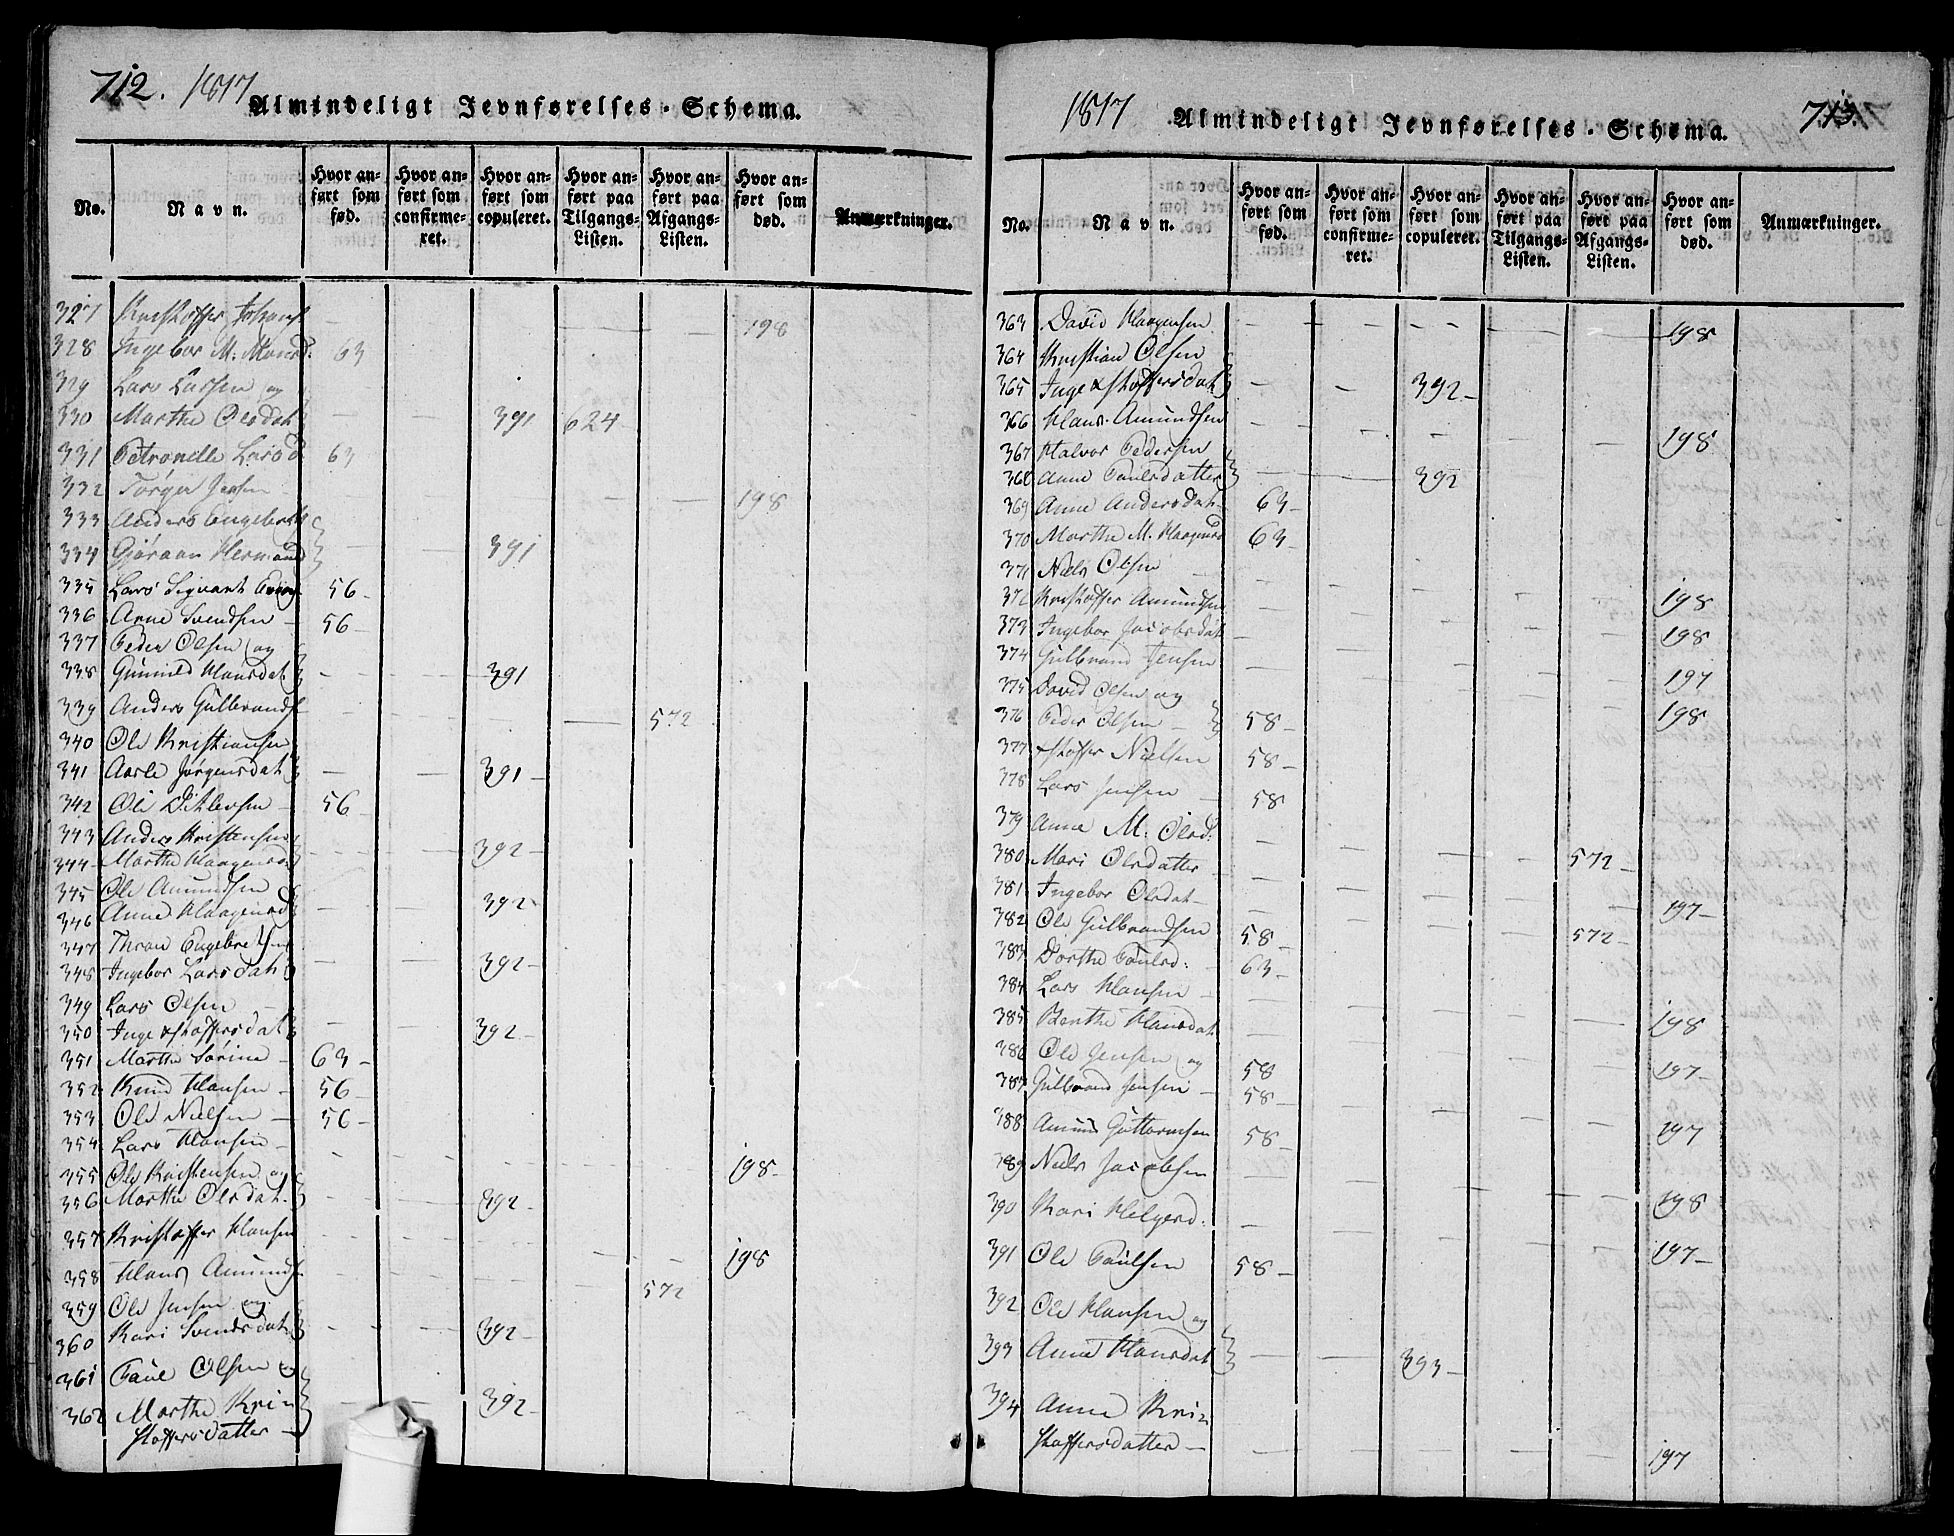 712. 1817
Almindeligt Jevnførelses-Schema.
No.
Navn.
Hvor anført som fød.
Hvor anført som confirmeret.
Hvor anført som copuleret.
Hvor anført paa Tilgangs-Listen.
Hvor anført paa Afgangs-Listen.
Hvor anført som død.
Anmærkninger.
327 Kristoffer Johans — 198
328 Ingebor M. 63
329 Lars Larsen og
330 Marthe Olsdat — — 391 624
331 Petronelle Larsd 63
332 Jensen — — 198
333 Anders Engebrets
334 Gjøraan Herm — — 391
335 Lars Sigvart 56 -
336 Arne Svendsen - 56 -
337 Peder Olsen og
338 Gunnild Hansdat - — 391
339 Anders Gulbrands — 572
340 Ole Kristiansen
341 Aarle Jørgensdat — — 391 -
342 Ole Ditlevsen - 56 -
343 Anders Kristensen
344 Marthe Haagensd — — 392 -
345 Ole Amundsen
346 Anne Haagensd — — 392 -
347 Thron Engebretsen
348 Ingebor Larsdat — — 392 -
349 Lars Olsen -
350 Inge xstoffersdat — — 392 -
351 Marthe Sørine - 63 -
352 Knud Hansen - 56 -
353 Ole Nielsen - 56 -
354 Lars Hansen - — — 198 -
355 Ole Kristensen og
356 Marthe Olsdat. — — 392 -
357 Kristoffer Hansen — — 198
358 Hans Amunds — 572
359 Ole Jensen og
360 Kari Svendsdat — — 392 -
361 Paul Olsen og
362 Marthe Kri
stoffersdatter - — — 392 -
1817 713.
Almindeligt Jevnførelses-Schema.
No.
Navn.
Hvor anført som fød.
Hvor anført som confirmeret.
Hvor anført som copuleret.
Hvor anført paa Tilgangs-Listen.
Hvor anført paa Afgangs-Listen.
Hvor anført som død.
Anmærkninger.
363 David Haagensen — — 198
364 Kristian Olsen
365 Inge xstoffersdat — — 392 -
366 Hans Amundsen — — 198
367 Halvor Pedersen
368 Anne Paulsdatter — — 392
369 Anne Andersdat 63 -
370 Marthe M. Haagensd 63 -
371 Niels Olsen - — 198
372 Kristoffer Amundsen — 198
373 Ingebor Jacobsdat — 197
374 Gulbrand Jensen — 198
375 David Olsen og
376 Peder Olsen - 58 -
377 xstoffer Nielsen 58 -
378 Lars Jensen - 58
379 Anne M. Olsd. — — 572
380 Mari Olsdatter - — — 197 -
381 Ingebor Olsdat - — 572 -
382 Ole Gulbrandsen 58 -
383 Dorthe Paulsd: 63 -
384 Lars Hansen - — 198
385 Berthe Hansdat — 197 -
386 Ole Jensen og 58
387 Gulbrand Jensen - 58 -
388 Amund Guttormsen 58 -
389 Niels Jacobsen — 198
390 Kari Helgesd. — 197 -
391 Ole Paulsen 58 -
392 Ole Hansen og
393 Anne Hansdat — — 393 -
394 Anne Kri
stoffersdatter - — — 197